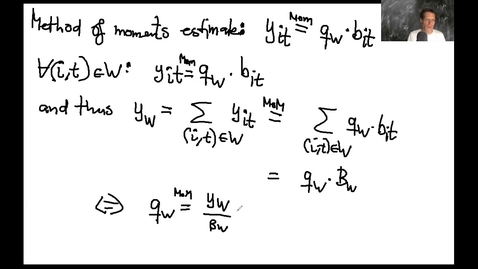 Method of moments estimate: y_it =^MoM q_w · b_it
∀(i,t)∈W: y_it =^MoM q_w · b_it
and thus y_w = Σ_(i,t)∈W y_it =^MoM Σ_(i,t)∈W q_w · b_it
= q_w · B_w
⇔ q_w =^MoM y_w / B_w